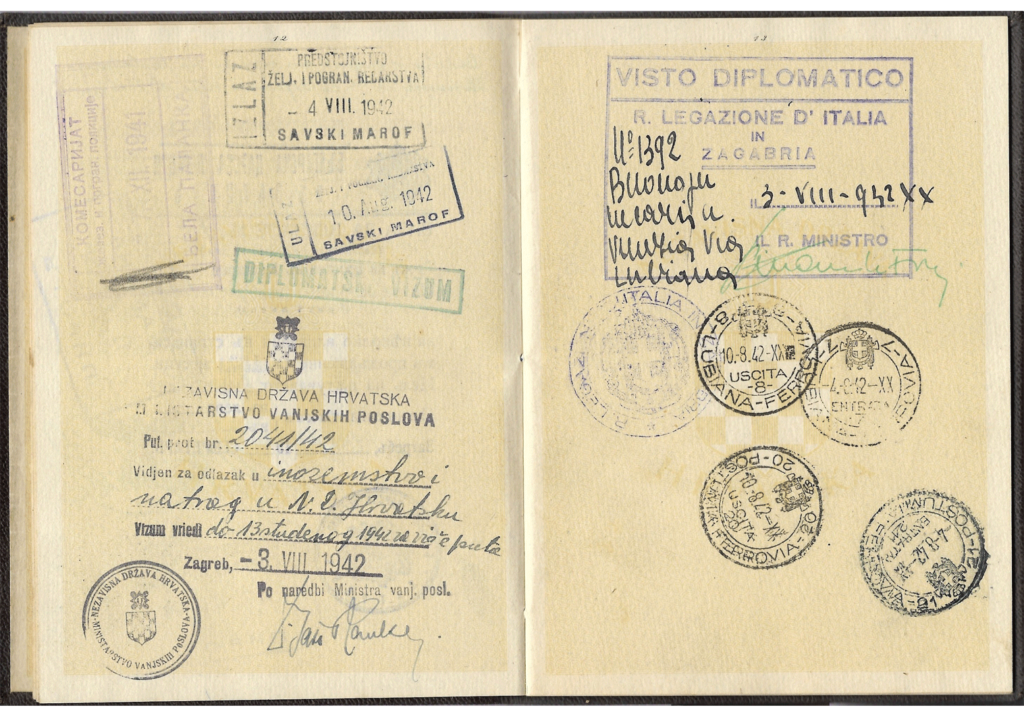 12
IZLAZ
PREDSTOJNIŠTVO
ŽELJ. I POGRAN. REDARSTVA
- 4 VIII. 1942
SAVSKI MAROF
KOMESARIJAT
ULAZ
10. Aug. 1942
SAVSKI MAROF
DIPLOMATSKI VIZUM
NEZAVISNA DRŽAVA HRVATSKA
MINISTARSTVO VANJSKIH POSLOVA
Put. prot. br. 2041/42
Vidjen za odlazak u inozemstvo i
natrag u N. D. Hrvatsku
Vizum vriedi do 13 studenog 1942 za više puta
Zagreb, - 3. VIII. 1942
Po naredbi Ministra vanj. posl.
NEZAVISNA DRŽAVA HRVATSKA
MINISTARSTVO VANJSKIH POSLOVA
13
VISTO DIPLOMATICO
R. LEGAZIONE D' ITALIA
IN
ZAGABRIA
No 1392
IL 3 - VIII - 942 XX
IL R. MINISTRO
ITALIA IN
8-LUBIANA-FERROVIA-8
10.-8.42-XX
USCITA
-8-
-4.8.42-XX
ENTRATA
20-POSTUMIA FERROVIA-20
10.8.42-XX
USCITA
21-POSTUMIA FERROVIA-21
-4-8-42-XX
ENTRATA